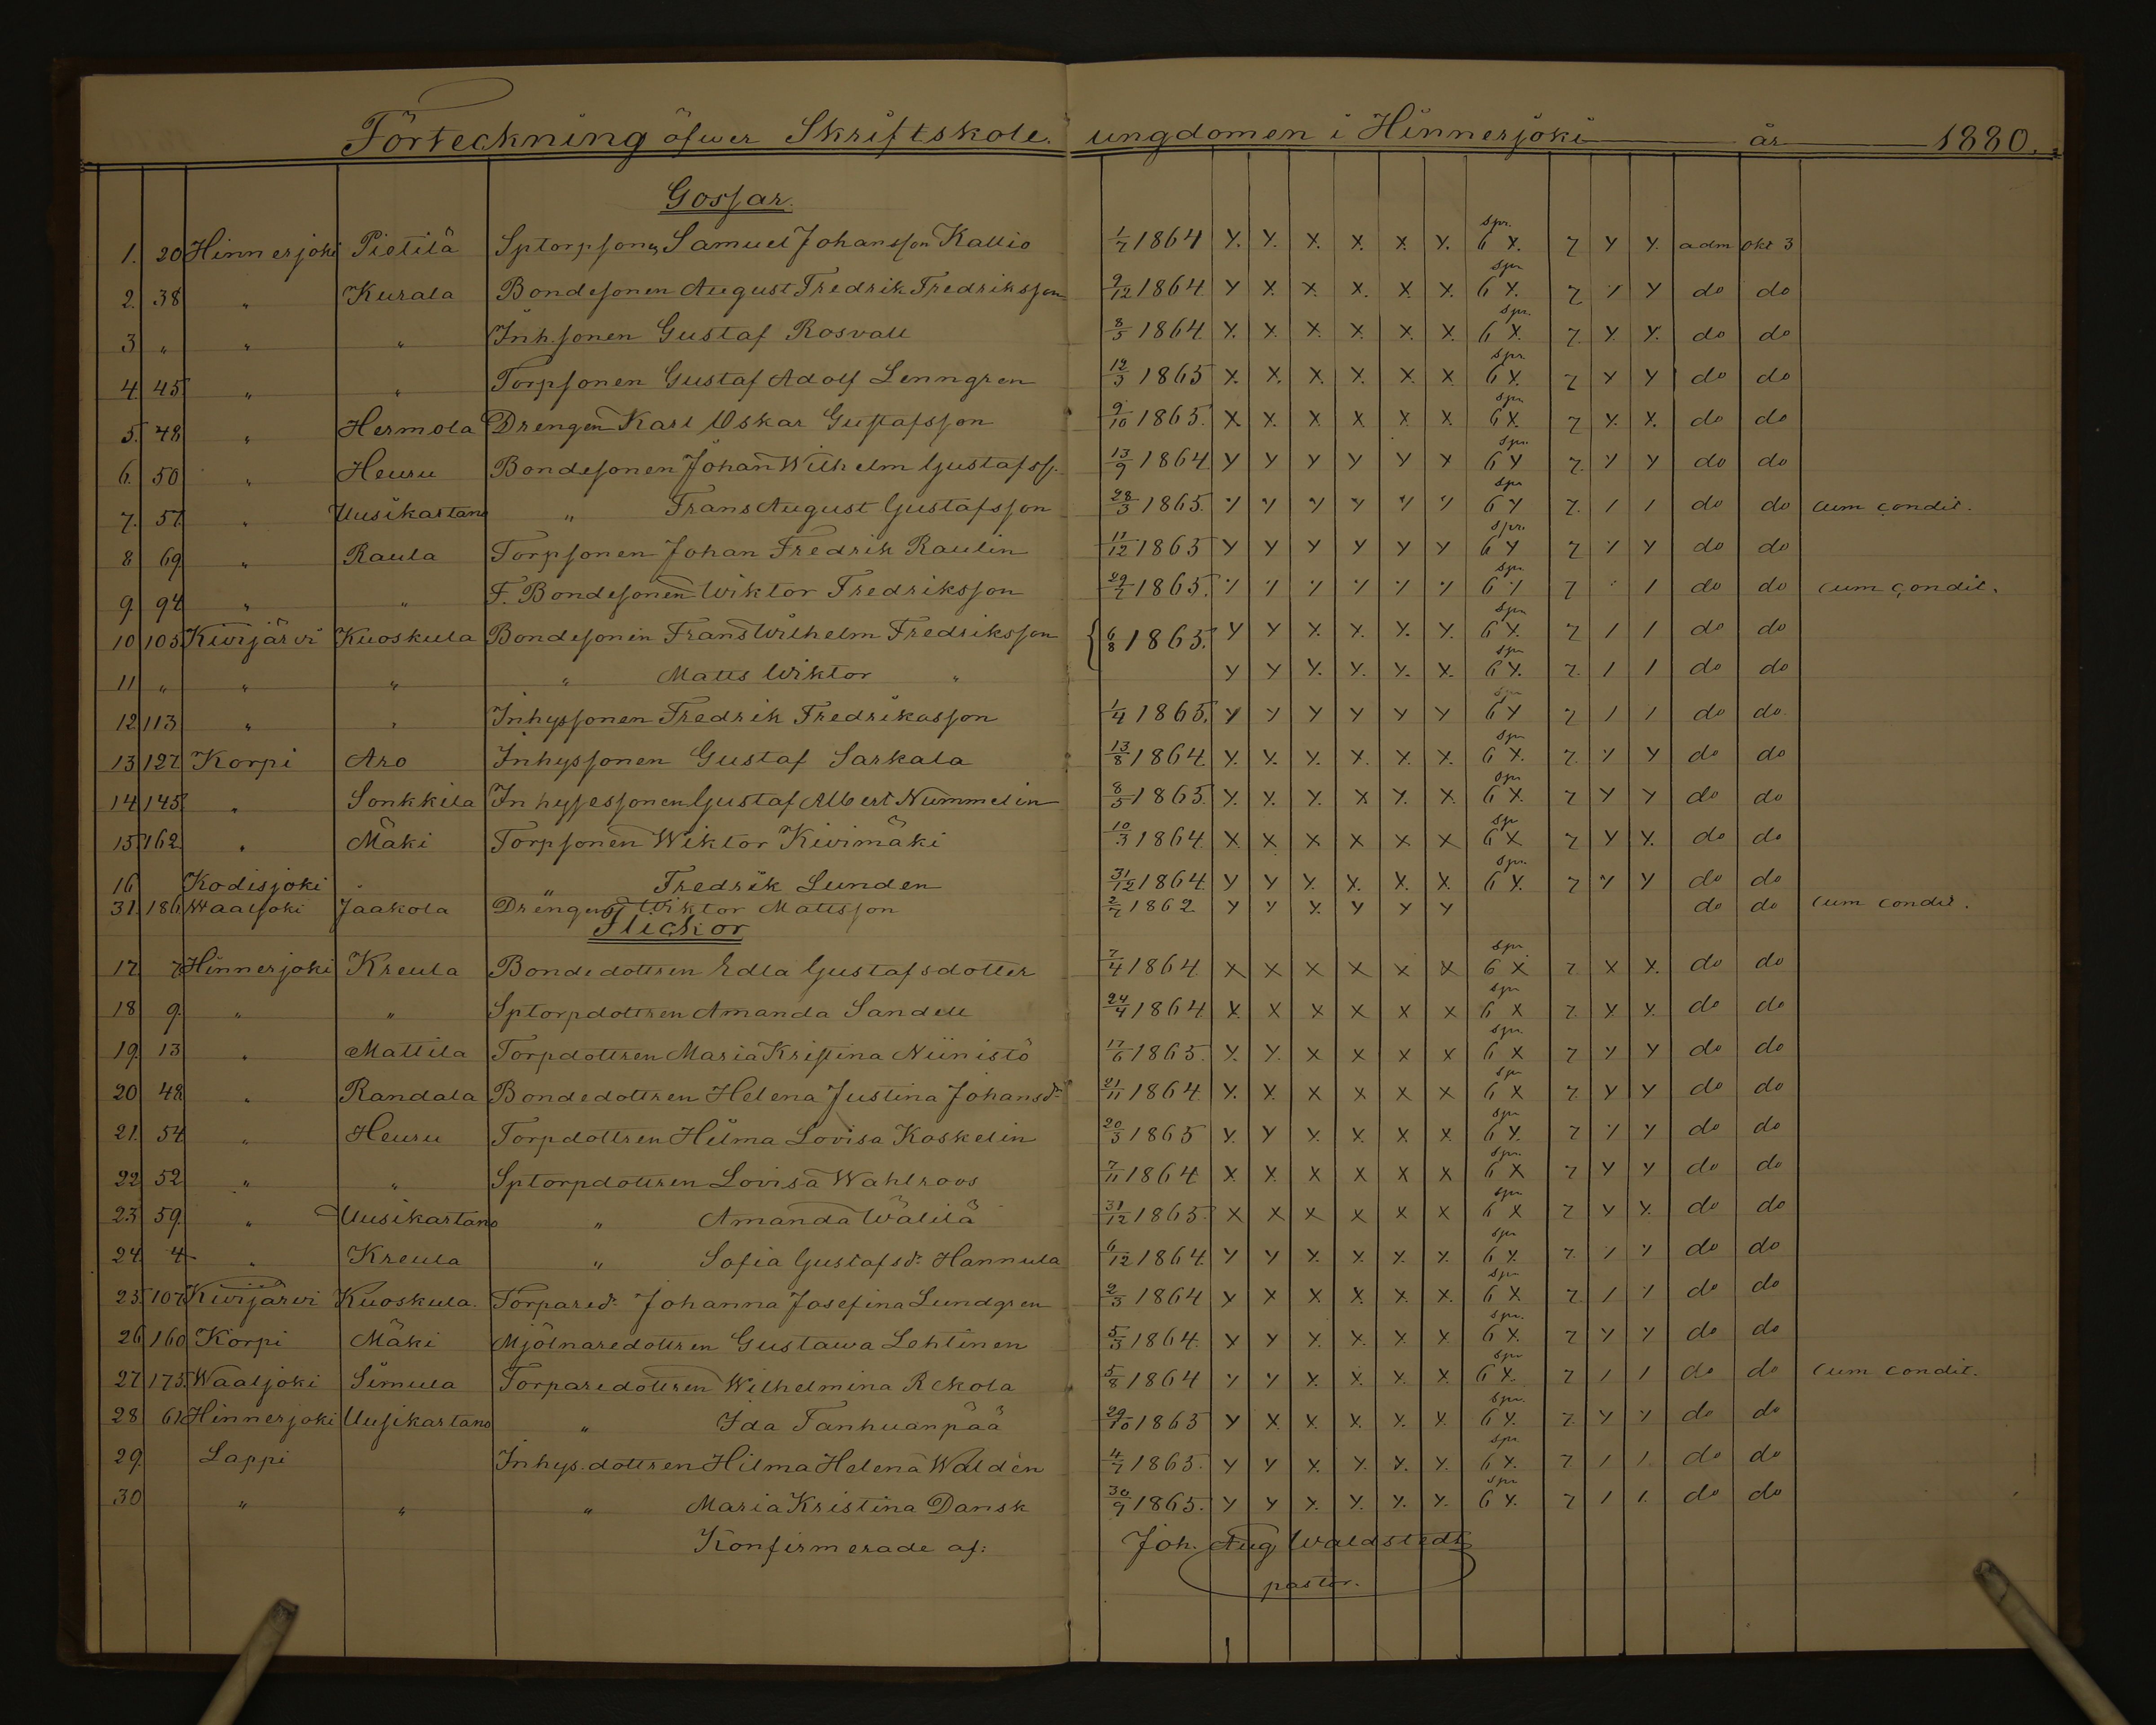 Förteckning öfwer Skriftskole- ungdomen i Hinnerjoki år 1880.
Gossar.
1. 20 Hinnerjoki Pietilä Sptorpsonen Samuel Johansson Kallio 1/7 1864 X. X. X. X. X. X. spr. 6 X. 7 X X. adm okt 3
2. 38 " Kurala Bondesonen August Fredrik Fredriksson 9/12 1864 X X. X. X. X. X. spr 6 X. 7 X X do do
3 " " " Inh.sonen Gustaf Rosvall 8/5 1864 X. X. X. X. X. X. spr. 6 X. 7. X. X. do do
4. 45. " " Torpsonen Gustaf Adolf Lenngren 12/3 1865 X. X. X. X. X. X spr. 6 X. 7 X X do do
5. 48 " Hermola Drengen Karl Oskar Gustafsson 9/10 1865. X. X. X. X X. X. spr 6 X. 7 X. X. do do
6. 50 " Heuru Bondesonen Johan Wilhelm Gustafss. 13/9 1864 X X X X X X spr. 6 X 7. X X do do
7. 57. " Uusikartano " Frans August Gustafsson 28/3 1865. X X X X X X spr 6 X 7. / / do do cum condit.
8 69 " Raula Torpsonen Johan Fredrik Raulin 11/12 1865 X X X X X X spr. 6 X 7 X X do do
9. 94 " " F. Bondesonen Wiktor Fredriksson 29/7 1865. X X X X X X spr 6 X 7 / / do do cum condit.
10 105. Kivijärvi Kuoskula Bondesonen Frans Wilhelm Fredriksson { 6/8 1865. X X X. X. X. X. spr 6 X. 7 / / do do
11 " " " " Matts Wiktor " X X X. X. X. X. spr 6 X. 7. / / do do
12. 113 " " Inhyssonen Fredrik Fredriksson 1/4 1865. X X X X X X spr 6 X 7 / / do do
13 127 Korpi Aro Inhyssonen Gustaf Sarkala 13/8 1864. X. X. X. X. X. X. spr 6 X. 7. X X do do
14 145 " Sonkkila Inhysessonen Gustaf Albert Nummelin 8/5 1865. X. X. X. X X. X. spr 6 X. 7 X X do do
15. 162. " Mäki Torpsonen Wiktor Kivimäki 10/3 1864 X. X X X X X spr 6 X 7 X X. do do
16 Kodisjoki " Fredrik Lunden 31/12 1864. X X X. X. X. X. spr. 6 X. 7 X X do do
31. 186 Waaljoki Jaakola Drengen Wiktor Mattsson 2/7 1862 X X X. X X X do do cum condit.
Flickor
17. 7 Hinnerjoki Kreula Bondedottren Edla Gustafsdotter 7/4 1864 X X X X X X spr 6 X 7 X X. do do
18 9. " " Sptorpdottren Amanda Sandell 24/4 1864 X. X X X X X spr 6 X 7. X. X. do do
19. 13 " Mattila Torpdottren Maria Kristina Niinistö 17/6 1865. X. X. X X X X spr. 6 X 7 X X do do
20 48 " Randala Bondedottren Helena Justina Johansdr 21/11 1864 X. X. X X X X spr 6 X 7. X X do do
21. 54 " Heuru Torpdottren Hilma Lovisa Koskelin 20/3 1865 X. X X. X. X. X. spr 6 X. 7 X X do do
22 52 " " Sptorpdottren Lovisa Wahlroos 7/11 1864 X. X. X X X X spr. 6 X 7 X X do do
23. 59. " Uusikartano " Amanda Wälilä 31/12 1865. X X X X X X spr 6 X 7 X X. do do
24. 4 " Kreula " Sofia Gustafsdr Hannula 6/12 1864. X X X. X. X. X. spr 6 X. 7. / X do do
25. 107. Kivijärvi Kuoskula. Torparedr Johanna Josefina Lundgren 2/3 1864 X X X. X. X. X. spr 6 X 7. / X do do
26 160 Korpi Mäki Mjölnaredottren Gustawa Lehtinen 5/3 1864. X X X. X. X. X. spr. 6 X. 7 X X do do
27 175. Waaljoki Simula Torparedottren Wilhelmina Rekola 5/8 1864 X X X. X. X. X. spr 6 X. 7 / / do do cum condit.
28 61 Hinnerjoki Uusikartano " Ida Tanhuanpää 29/10 1865 X X. X. X. X. X. spr. 6 X. 7. X X do do
29. Lappi Inhys.dottren Hilma Helena Waldén 4/7 1865. X X X. X. X. X. spr 6 X. 7 / / do do
30 " " " Maria Kristina Dansk 30/9 1865. X X X. X. X. X. spr 6 X. 7 / /. do do
Konfirmerade af: Joh. Aug Waldstedt
pastor.